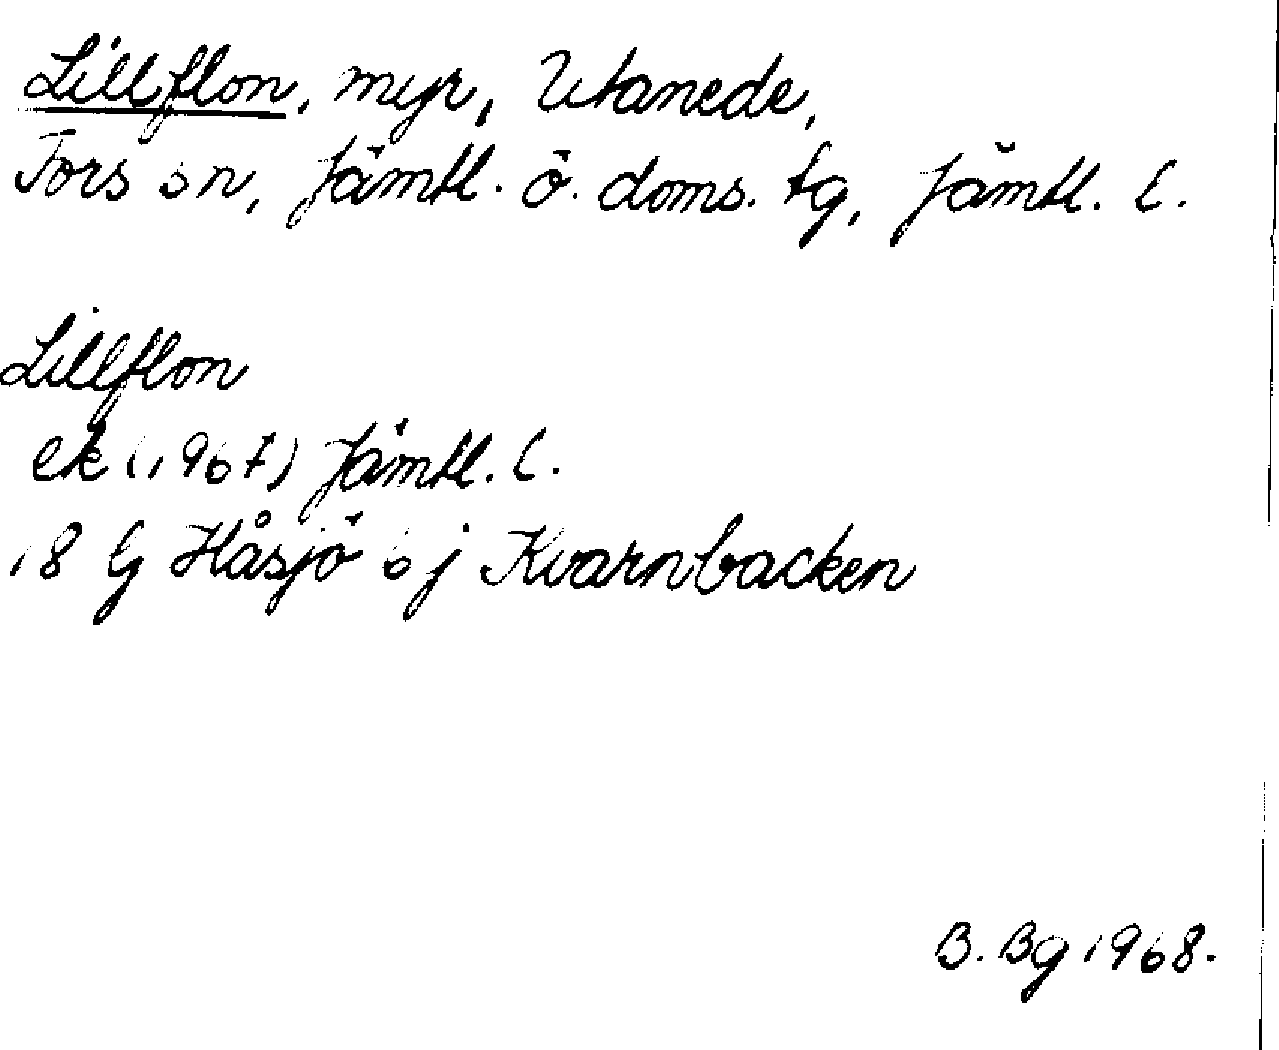 Lillflon, myr, Utanede,
Fors sn, Jämtl. ö. doms. tg, Jämtl. l.
Lillflon
ek (1967) Jämtl. l.
18 G Håsjö 6 j Kvarnbacken
B. Bg 1968.